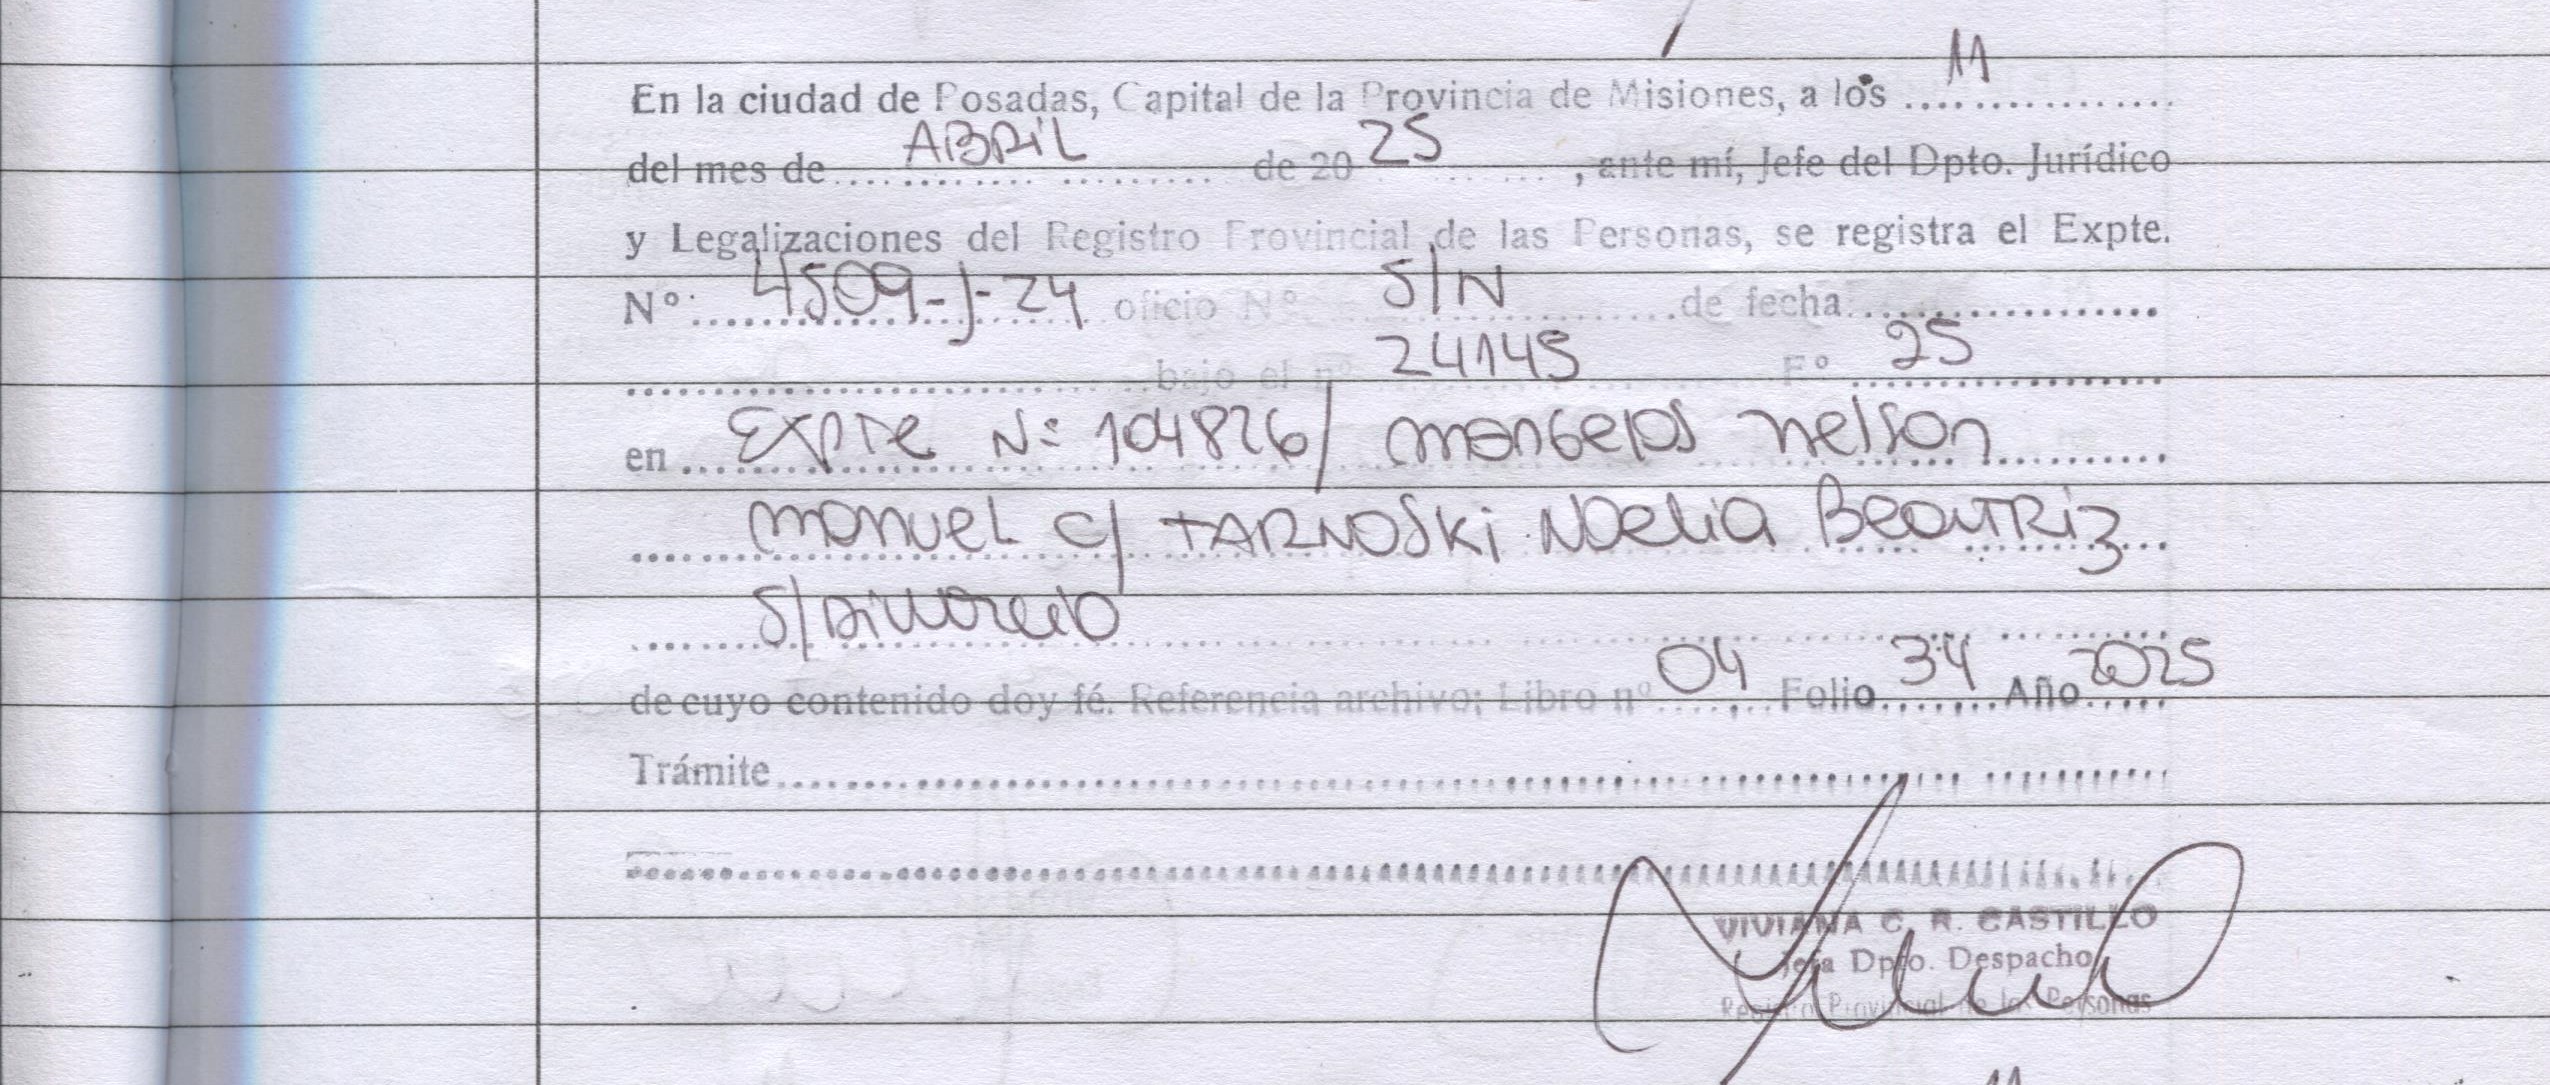 En la ciudad de Posadas, Capital de la Provincia de Misiones, a los 11
del mes de ABRIL de 20 25, ante mí, Jefe del Dpto. Jurídico
y Legalizaciones del Registro Provincial de las Personas, se registra el Expte.
N°: 4509-J-24 oficio N° S/N de fecha
bajo el n° 24145 F° 25
en Expte N: 104826/ Mangelos Nelson
Manuel c/ TARNOSKi Noelia BeatRiz
S/Divorcio
de cuyo contenido doy fé. Referencia archivo; Libro n° 04 Folio 34 Año 2025
Trámite
VIVIANA C. R. CASTILLO
Jefa Dpto. Despacho
Registro Provincial de las Personas